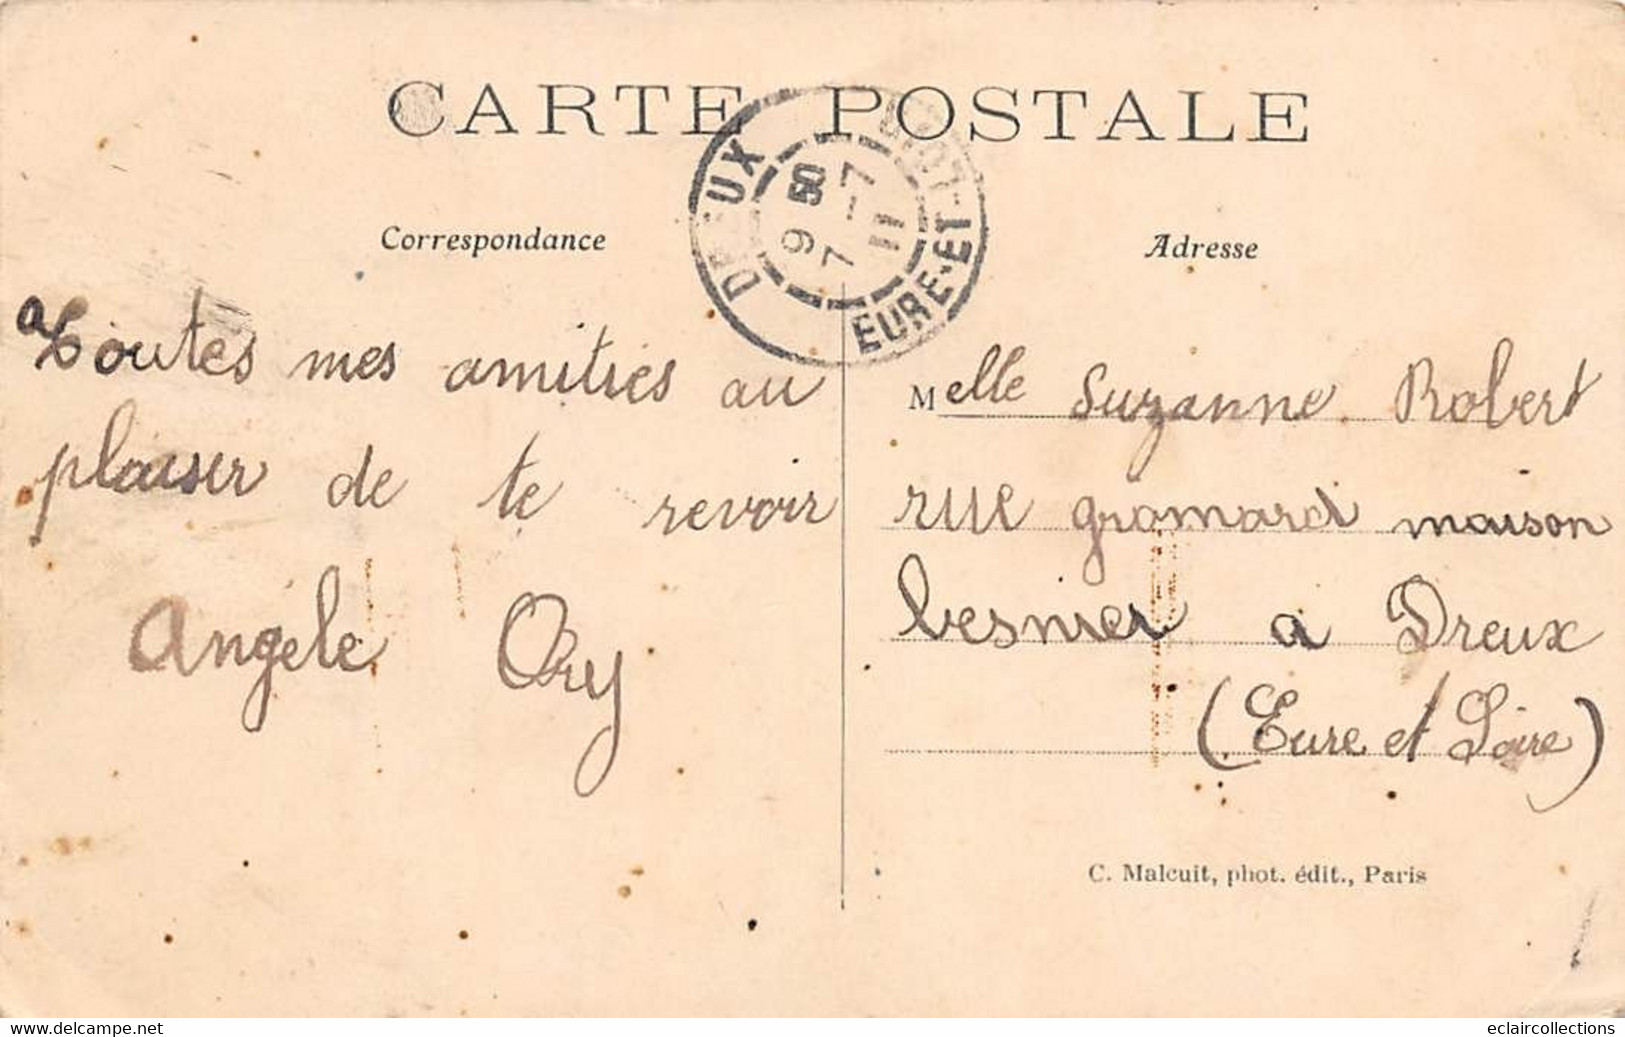 CARTE POSTALE
DREUX
9 50
7 -7
11
EURE-ET-LOIR
Correspondance
Adresse
a Toutes mes amitiés au
plaisir de te revoir
Angèle Ory
Melle Suzanne Robert
rue gromard maison
besnier a Dreux
(Eure et Loire)
C. Malcuit, phot. édit., Paris
www.delcampe.net
eclaircollections